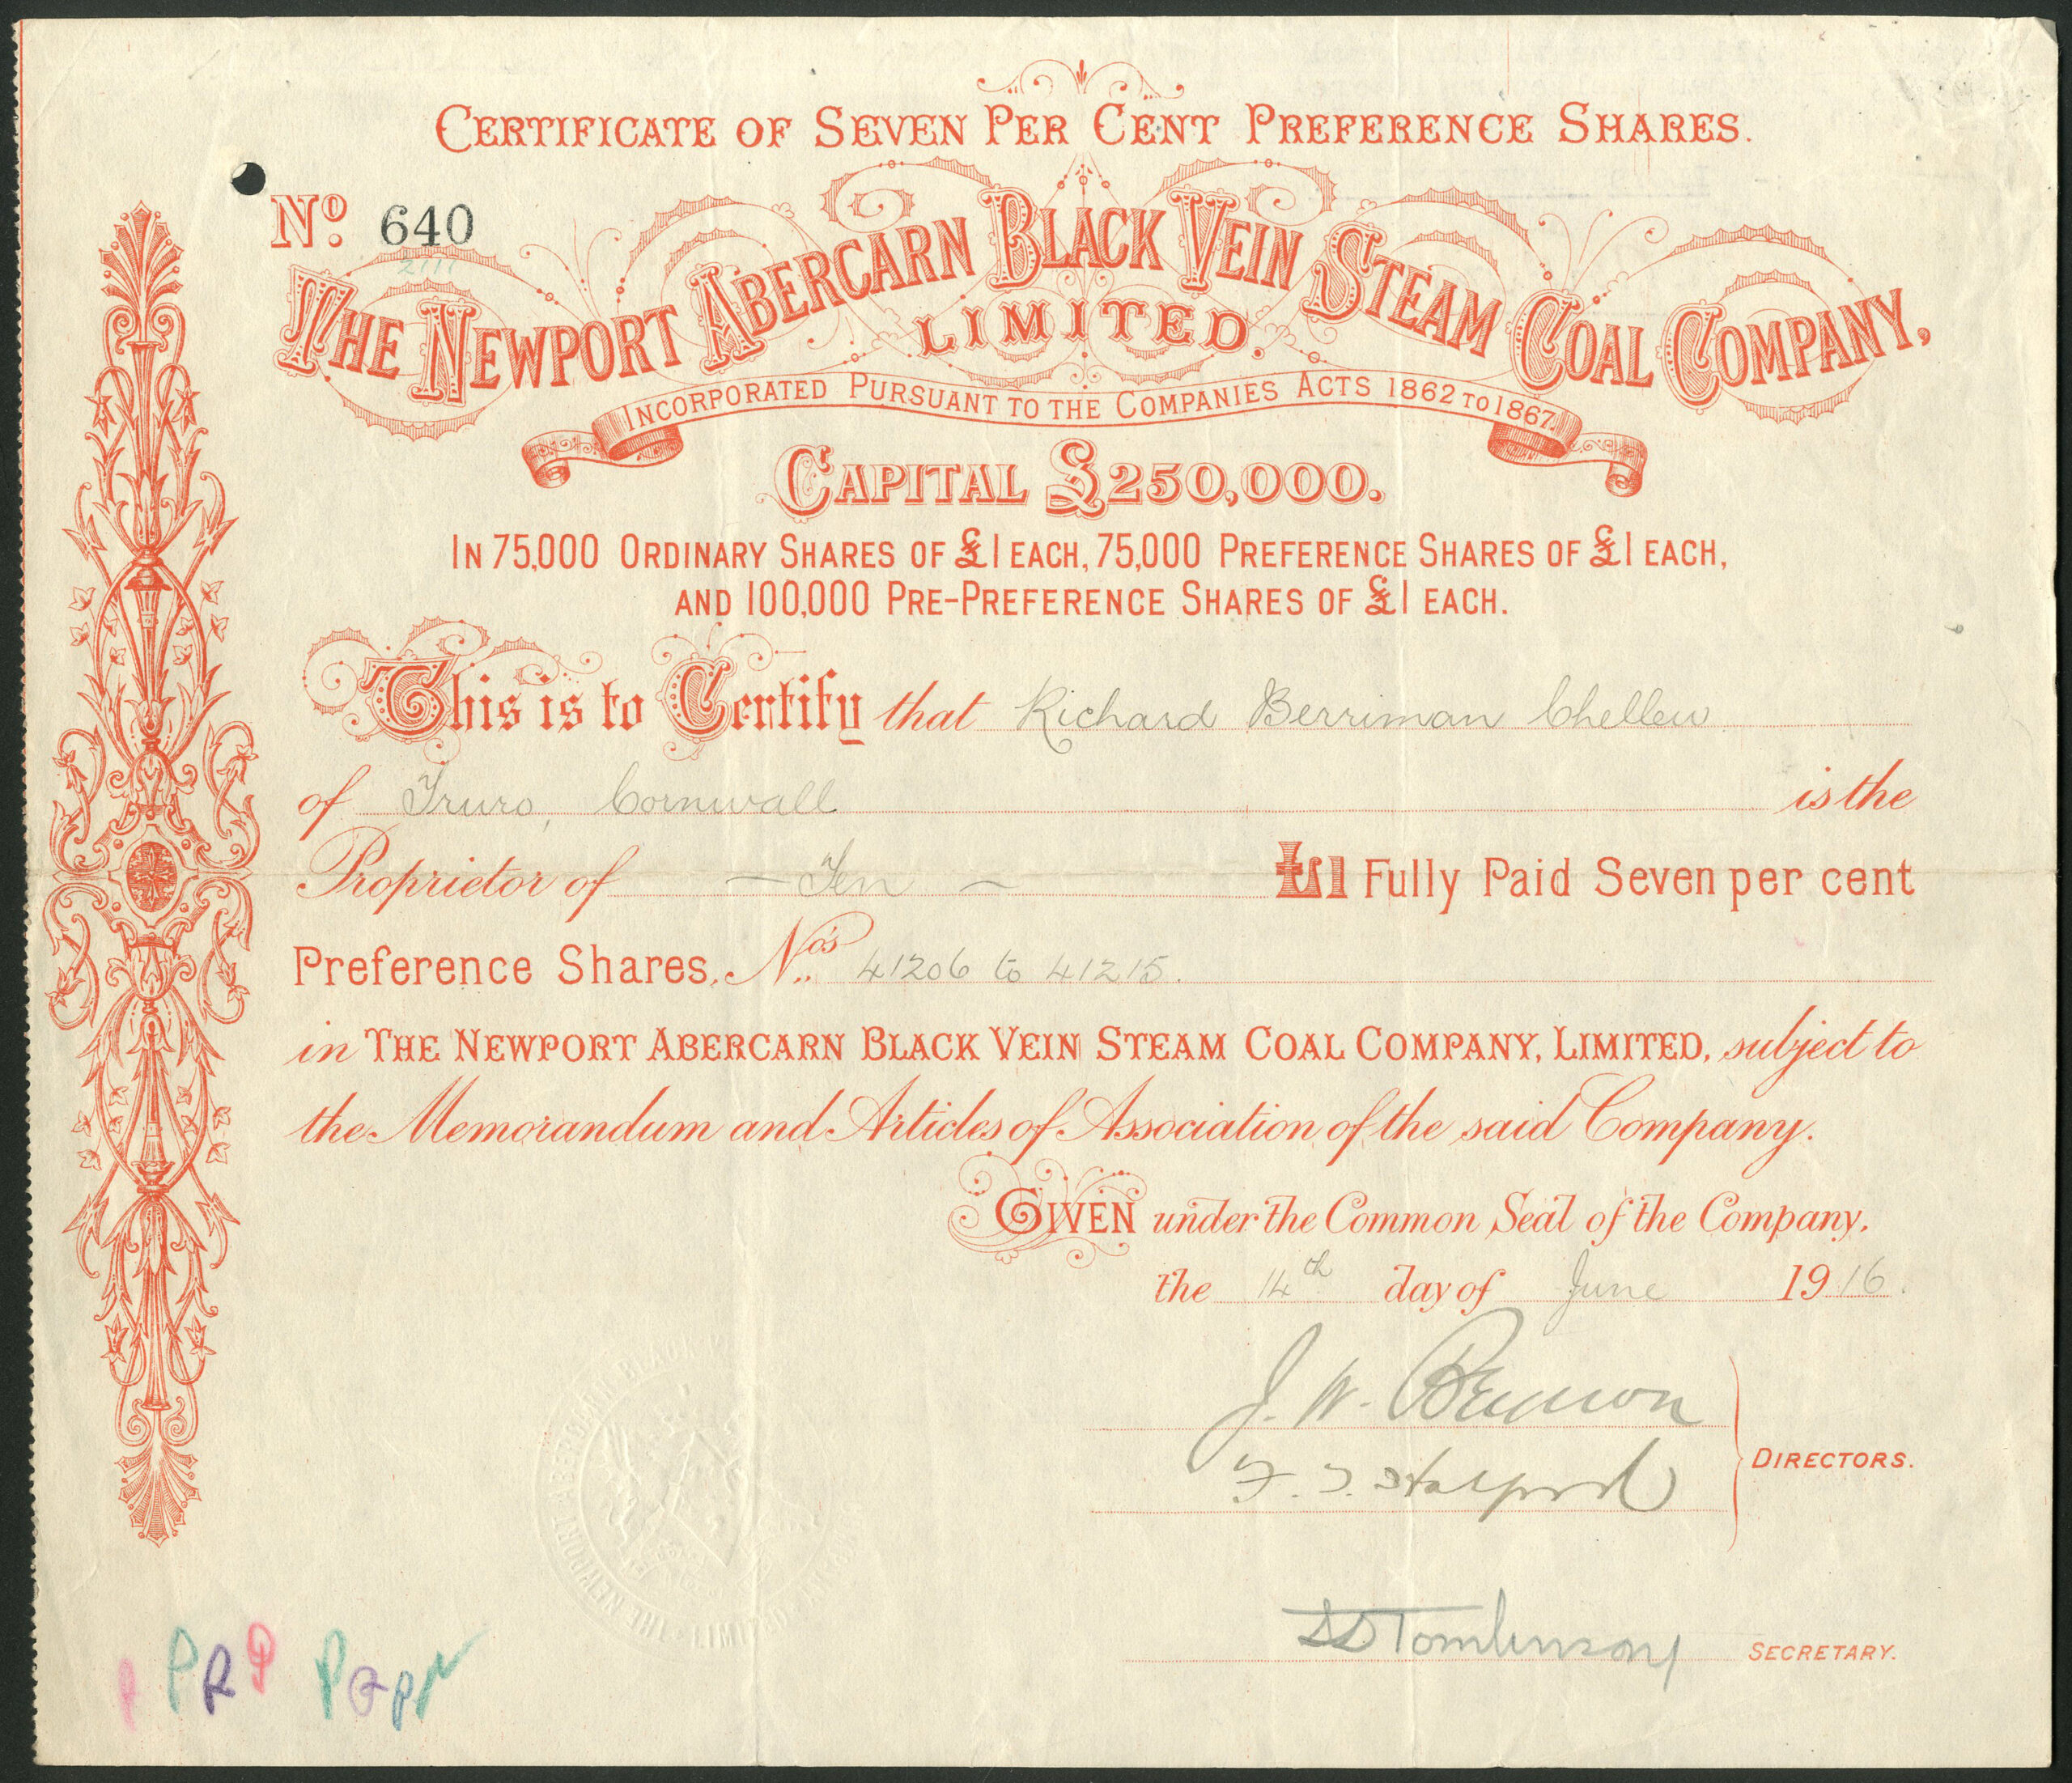 CERTIFICATE OF SEVEN PER CENT PREFERENCE SHARES.
No. 640
2111
THE NEWPORT ABERCARN BLACK VEIN STEAM COAL COMPANY,
LIMITED.
INCORPORATED PURSUANT TO THE COMPANIES ACTS 1862 TO 1867.
CAPITAL £250,000.
IN 75,000 ORDINARY SHARES OF £1 EACH, 75,000 PREFERENCE SHARES OF £1 EACH,
AND 100,000 PRE-PREFERENCE SHARES OF £1 EACH.
This is to Certify that Richard Berriman Chellew
of Truro, Cornwall is the
Proprietor of — Ten — £1 Fully Paid Seven per cent
Preference Shares, Nos. 41206 to 41215.
in THE NEWPORT ABERCARN BLACK VEIN STEAM COAL COMPANY, LIMITED, subject to
the Memorandum and Articles of Association of the said Company.
GIVEN under the Common Seal of the Company,
the 14th day of June 1916.
J. W. Beynon
DIRECTORS.
Tomlinson SECRETARY.
THE NEWPORT ABERCARN BLACK LIMITED